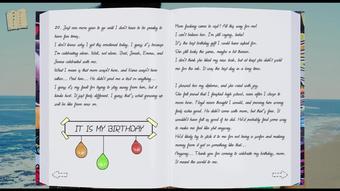 20. Just one more year to go until I don't have to be sneaky to
have fun
I don't know why I get this emotional today, I guess it's because
I'm celebrating alone. Well, not alone. Dad, Jenish, Emma, and
Jenna celebrated with me.
What I mean is that mom wasn't here, and
either. And
He didn't send me a text or anything...
I guess it's my fault for trying to stay away from him, but it
kinda hurt. It just feels different. I guess that's what growing up
will be like from now on.
IT IS MY BIRTHDAY
Mom fucking came to me! All the way for me!
I can't believe her. I'm still crying, haha!
It's the best birthday gift I could have asked for.
She still looks the same, maybe a bit thinner.
I don't think she liked my new look, but at least she didn't yell
at me for it. It was the best day in a long time.
I showed her my diploma, and she cried with joy.
She felt proud that I finished high school, even after I chose to
move here. Floyd never thought I would, and proving him wrong
feels extra good. He didn't come with mom, but that's fine. It
wouldn't have felt as good if he did. He'd probably find some way
to make me feel like shit anyway.
He'd likely try to pick it to me for not being a wafer and making
money from it yet or something like that...
Anyway... Thank you for coming to celebrate my birthday, mom.
It meant the world to me.